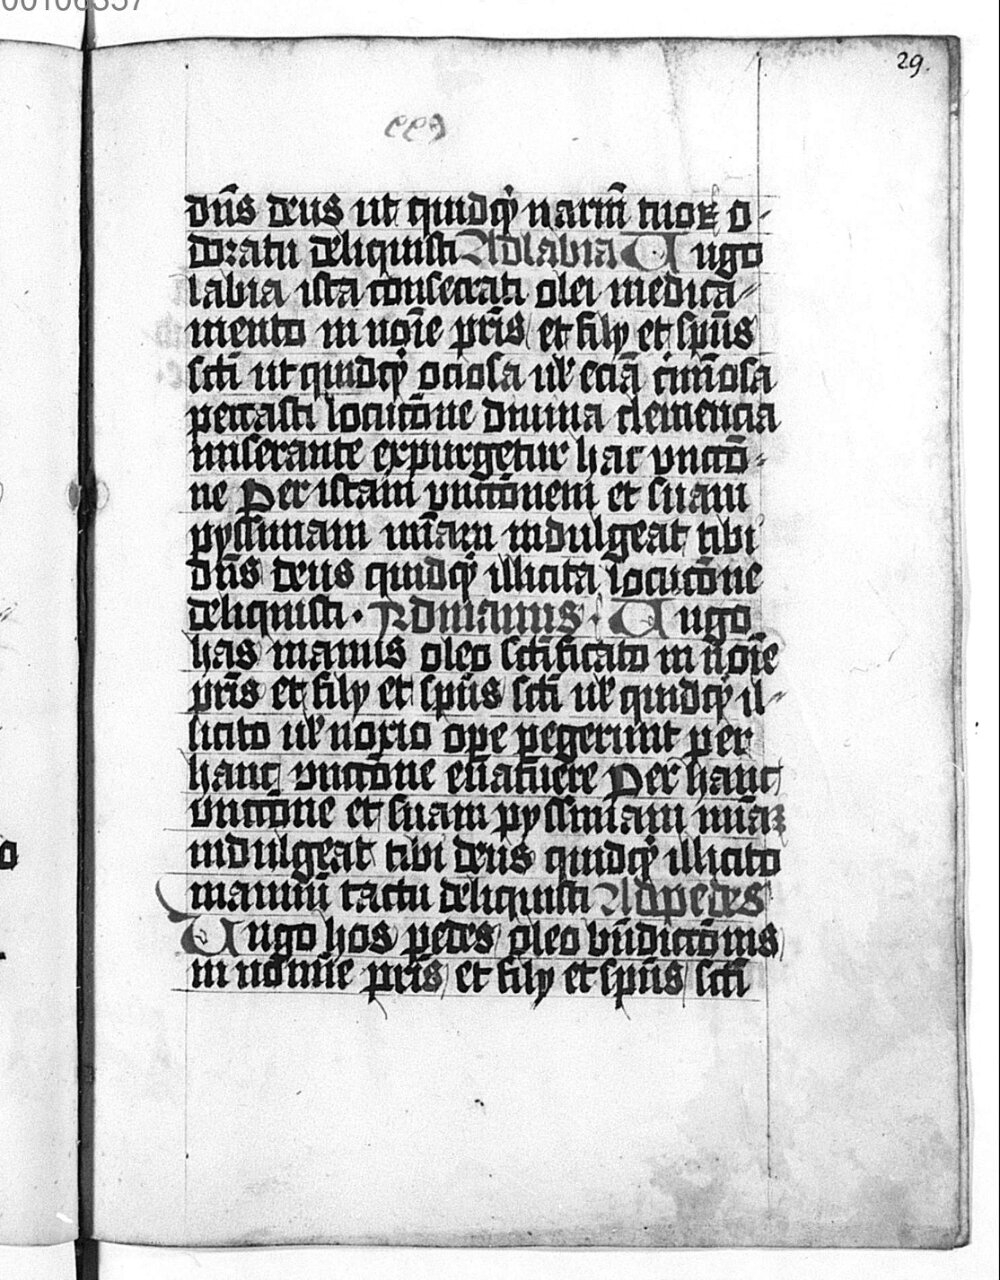 00106357
29.
dn̄s deus ut quidq̄ nariū tuoꝝ o-
doratu deliquisti Ad labia Ungo
labia ista consecrati olei medica-
mento in noīe pr̄is et filij et sp̄us
sc̄ti ut quidq̄ ociosa uł eciā c̄mīosa
peccasti locuc̄one diuina clemencia
miserante expurgetur hac vncc̄o-
ne Per istam vncc̄onem et suam
pyssimam mīam indulgeat tibi
dn̄s deus quidq̄ illicita locuc̄one
deliquisti. Ad manus. Ungo
has manus oleo sc̄tificato in noīe
pr̄is et filij et sp̄us sc̄ti uł quidq̄ il-
licito uł noxio ope pegerunt per
hanc vncc̄one euacuere Per hanc
vncc̄one et suam pyssimam mīaꝫ
indulgeat tibi deus quidq̄ illicito
manuū tactu deliquisti Ad pedes
Ungo hos pedes oleo bn̄dicc̄onis
in nomīe pr̄is et filij et sp̄us sc̄ti